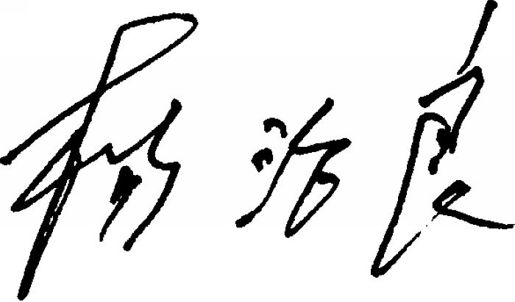 杨治良